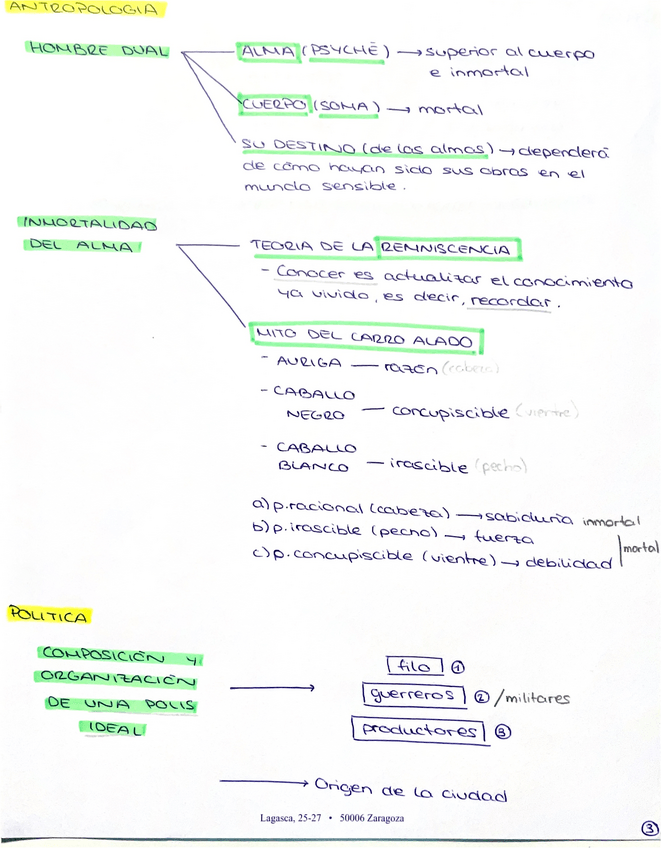 ANTROPOLOGIA
HOMBRE DUAL
ALMA (PSYCHÉ) → superior al cuerpo
e inmortal
CUERPO (SOMA) → mortal
SU DESTINO (de las almas) → dependerá
de cómo hayan sido sus obras en el
mundo sensible.
INMORTALIDAD
DEL ALMA
TEORIA DE LA REMNISCENCIA
- Conocer es actualizar el conocimiento
ya vivido, es decir, recordar.
MITO DEL CARRO ALADO
- AURIGA — razón (cabeza)
- CABALLO
NEGRO — concupiscible (vientre)
- CABALLO
BLANCO — irascible (pecho)
a) p. racional (cabeza) → sabiduría inmortal
b) p. irascible (pecho) → fuerza
mortal
c) p. concupiscible (vientre) → debilidad
POLITICA
COMPOSICIÓN Y
ORGANIZACIÓN
DE UNA POLIS
IDEAL
→
filo ①
guerreros ② / militares
productores ③
→ Origen de la ciudad
Lagasca, 25-27 • 50006 Zaragoza
③